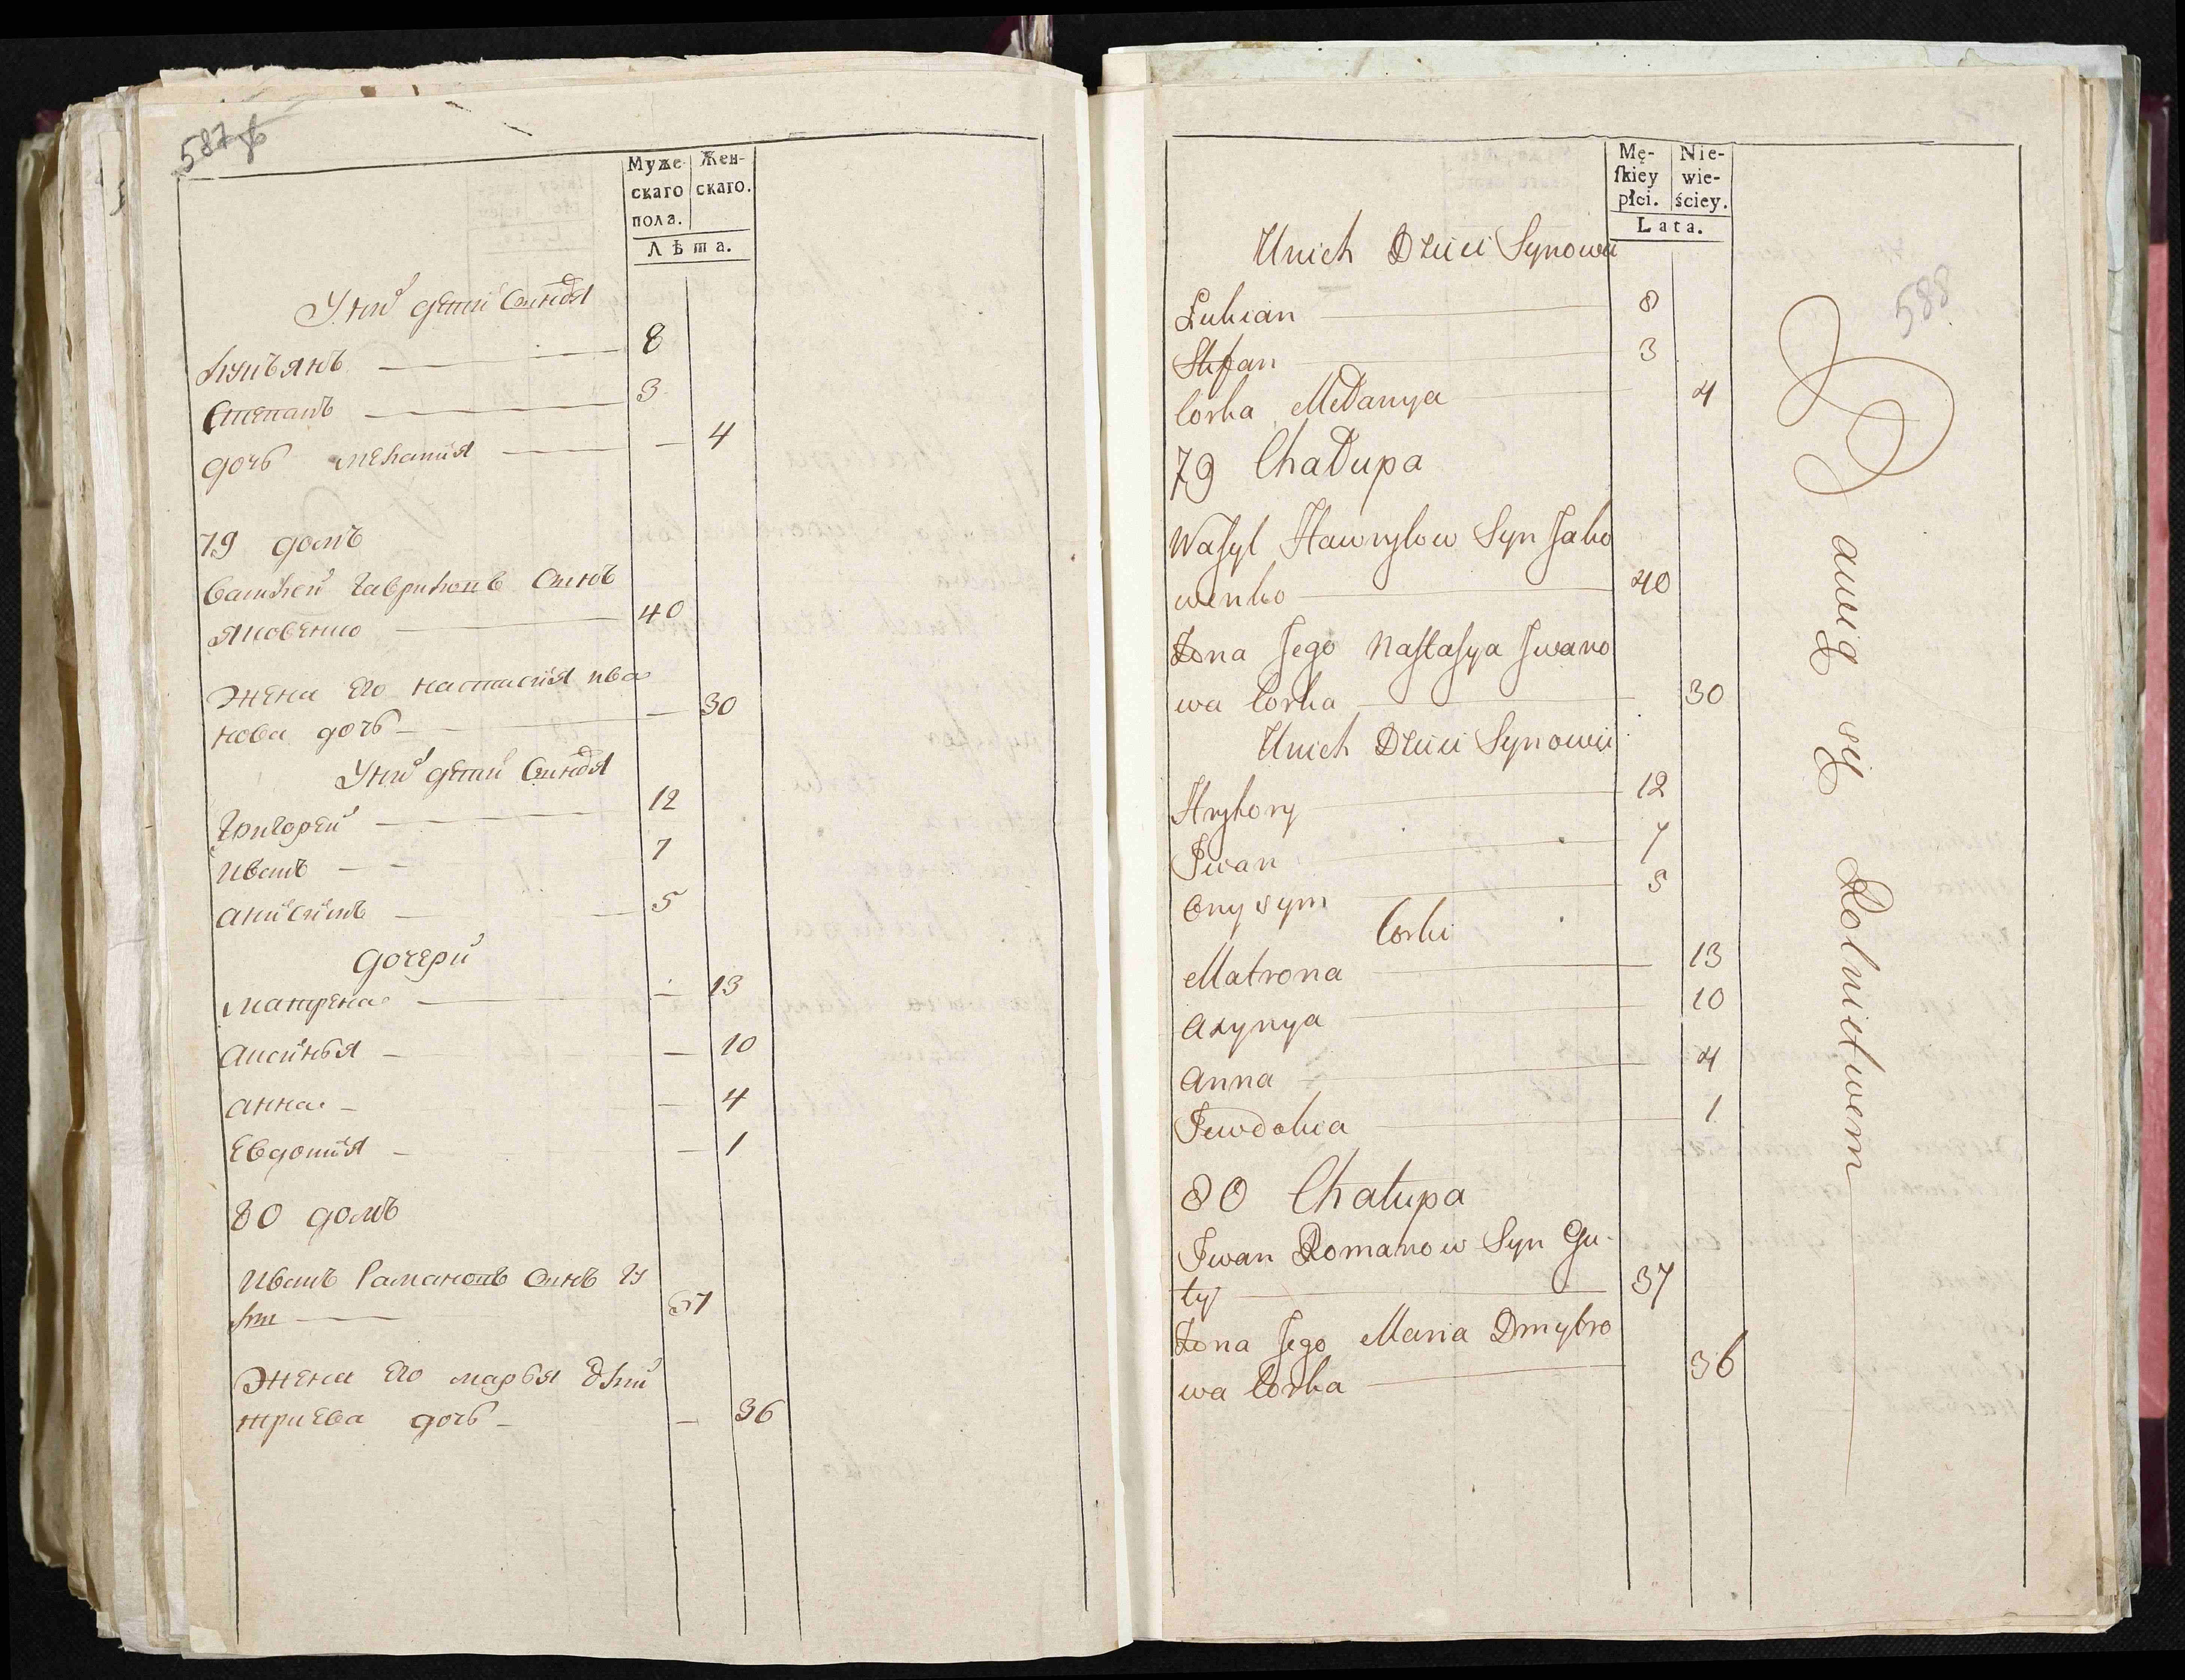 587 об
Муже- Жен-
скаго скаго.
пола.
Лѣта.
У них детей синовя
Лукъянъ — 8
Степанъ — 3
дочь Мелания — — 4
79 домъ
Василей Гаврилов Синъ
Яковенко — 40
Жена Его Настасия Ива
нова дочь — — 30
У них детей Синовя
Григорей — 12
Иванъ — 7
Анисимъ — 5
Дочери
Матрена — — 13
Аксинья — — 10
Анна — — 4
Евдокия — — 1
80 домъ
Иванъ Романовъ Синъ Гу
— 37
Жена Его Марья Дми
триева дочь — — 36
588
Mę- Nie-
ſkiey wie-
płci. ściey.
Lata.
Unich Dzieci Synowie
Łukian — 8
Stefan — 3
Corka Mełanya — 4
79 Chałupa
Waſyl Hawryłow Syn Jako
wenko — 40
Żona Jego Naſtaſya Jwano
wa Corka — 30
Unich Dzieci Synowie
Hryhory — 12
Jwan — 7
Onysym — 5
Corki
Matrona — 13
Axynya — 10
Anna — 4
Jewdokia — 1
80 Chałupa
Jwan Romanow Syn Gu-
ty — 37
Żona Jego Maria Dmytro
wa Corka — 36
Bawią się Rolnictwem